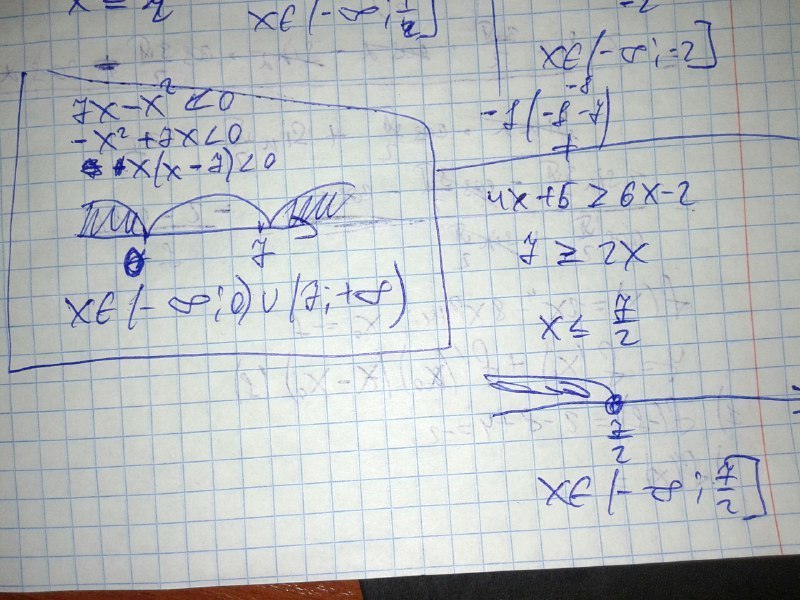 x∈(-∞; 7/2]
-2
x∈(-∞; -2]
-8
-1(-8-7)
+
7x-x²<0
-x²+7x<0
x(x-7)<0
-
0 7
x∈(-∞;0)∪(7;+∞)
4x+5≥6x-2
7≥2x
x≤7/2
7/2
x∈(-∞; 7/2]